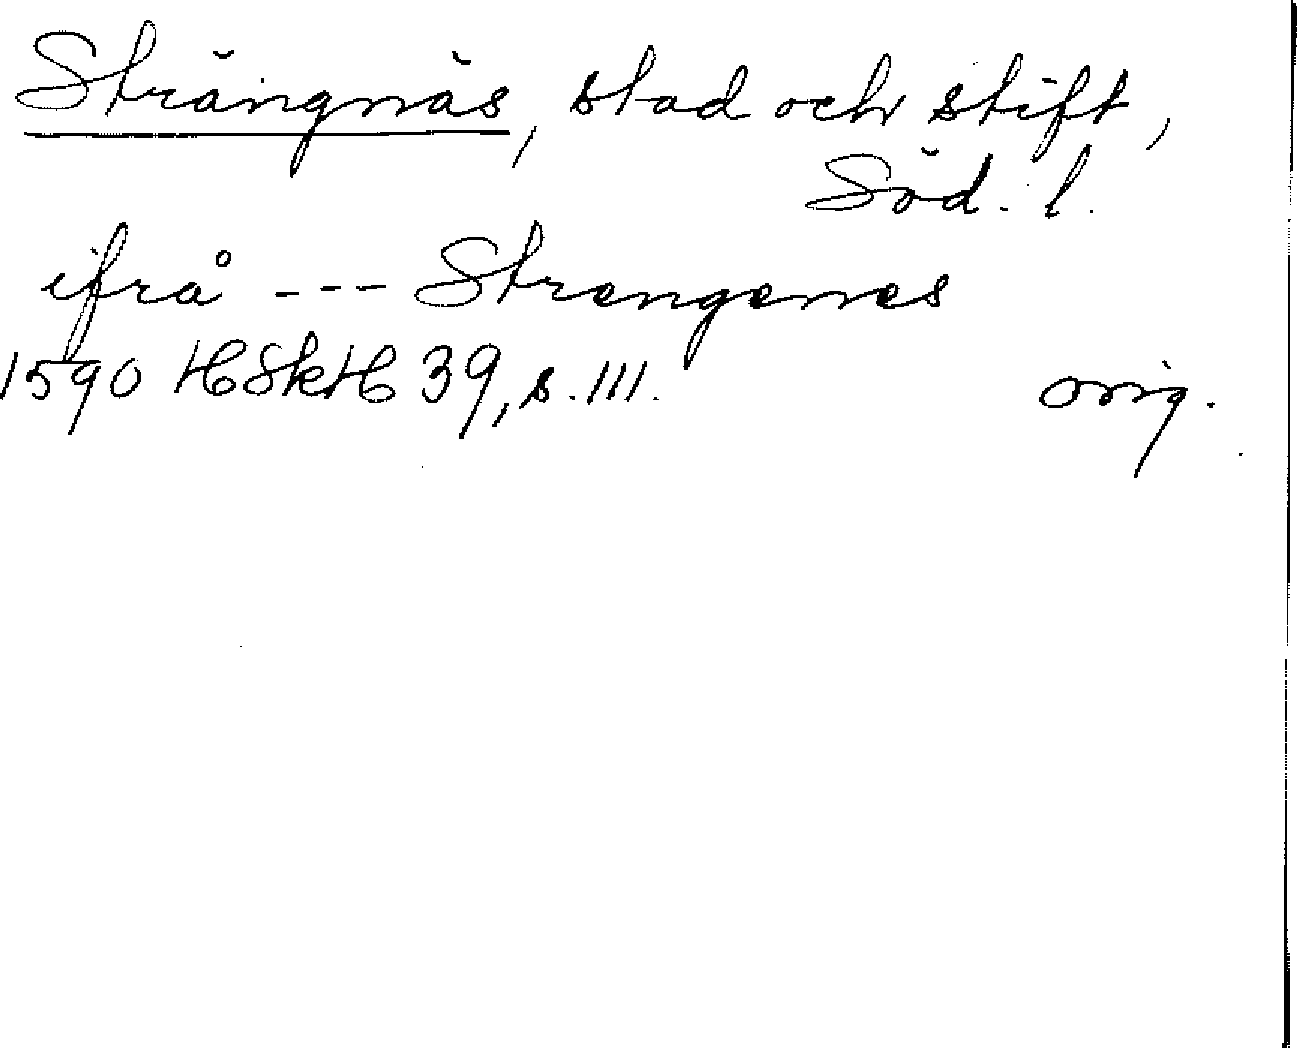 Strängnäs, stad och stift,
Söd. l.
ifrå --- Strengenes
1590 HSkH 39, s. 111. orig.